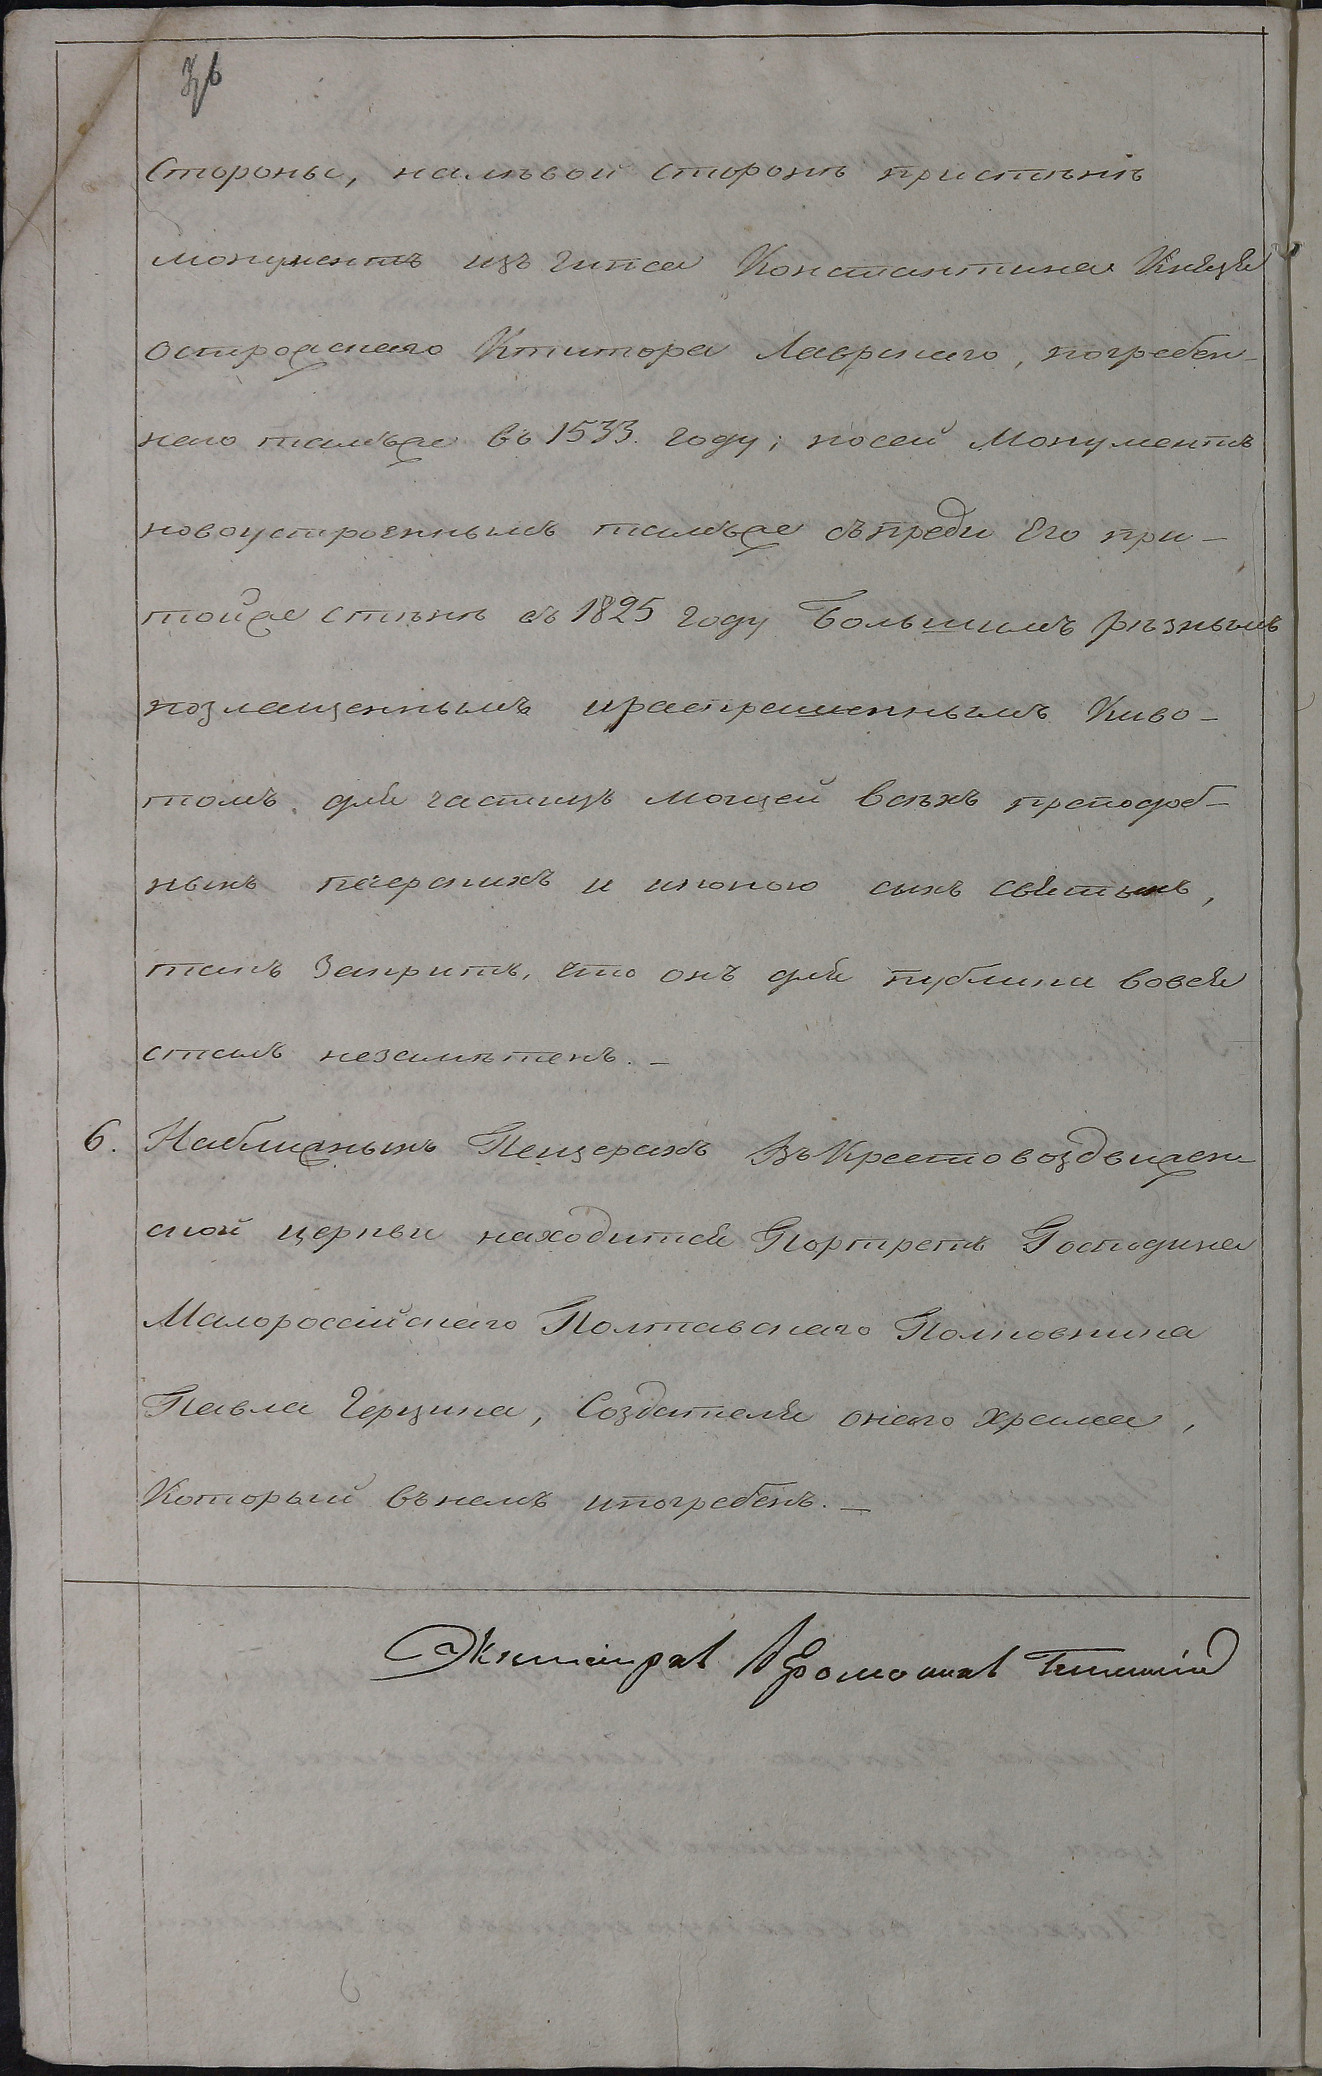 стороны, налѣвой сторонѣ пристѣнѣ
монументъ изъ гипса Константина Князя
острожскаго Ктитора Лаврскаго, погребен-
наго тамъже въ 1533. году; носей Монументъ
новоустроеннымъ тамъже съпреди Его при-
тойже стѣнѣ въ 1825 году Большимъ рѣзнымъ
позлащеннымъ ираскрашеннымъ Киво-
томъ для частицъ мощей всѣхъ преподоб-
ныхъ печерскихъ и иконою сихъ святыхъ,
такъ закрытъ, что онъ для публики вовся
сталъ незамѣтенъ. –
6. Наближныхъ Пещерахъ Въ Крестовоздвижен-
ской церкви находится Портретъ Господина
Малороссійскаго Полтавскаго Полковника
Павла Герцика, Создателя онаго храма,
Который въ немъ ипогребенъ. –